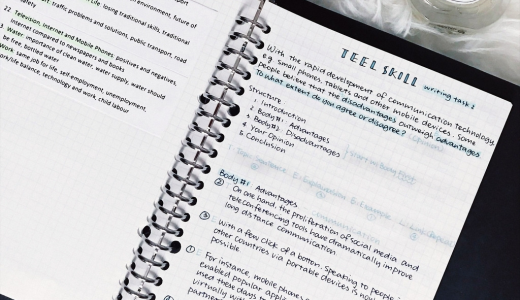 environment, future of
losing traditional skills, traditional
safety
art, traffic, problems and solutions, public transport, road
22. Television, Internet and Mobile Phones, positives and negatives,
Internet compared to newspapers and books
Water, importance of clean water, water supply, water should
be free, bottled water
Work, same job for life, self employment, unemployment,
work/life balance, technology and work, child labour
TEEL SKILL writing task 2
With the rapid development of communication technology,
e.g. smart phones, tablets and other mobile devices. Some
people believe that the disadvantages outweigh advantages
To what extent do you agree or disagree?
Structure
1. Introduction
2. Body#1: Advantages
3. Body#2: Disadvantages
4. Your Opinion
5. Conclusion
Body #1 Advantages
② On one hand, the proliferation of social media and
teleconferencing tools have dramatically improve
long distance communication
③ With a few click of a botton. Speaking to people
other countries via portable devices is now
possible.
① For instance, mobile phones
enabled popular applic
used these days t
virtually with
partner